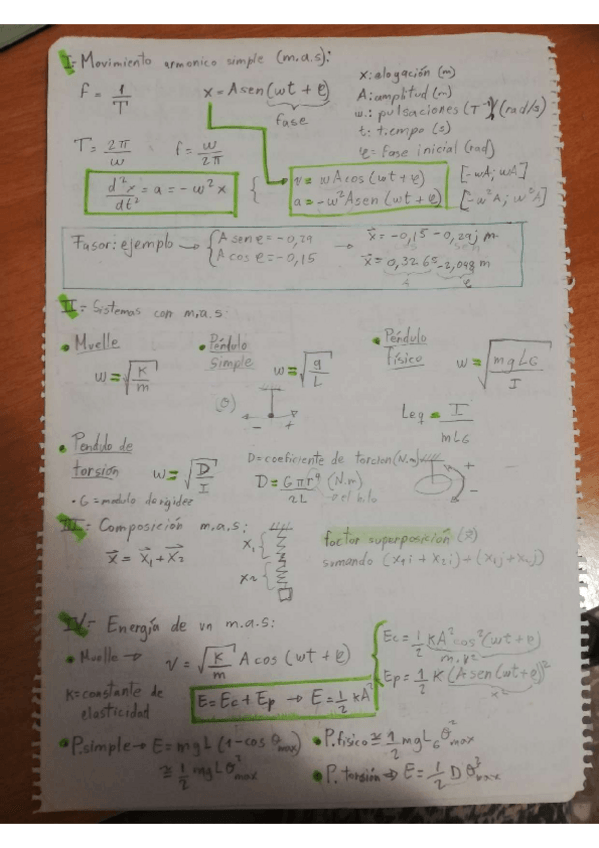 I.- Movimiento armonico simple (m.a.s):
f = 1/T
x = A sen(wt + φ)
fase
x: elogación (m)
A: amplitud (m)
w: pulsaciones (T⁻¹) (rad/s)
t: tiempo (s)
φ = Fase inicial (rad)
T = 2π/w
f = w/2π
d²x/dt² = a = -w²x
v = wA cos(wt + φ) [-wA; wA]
a = -w²A sen(wt + φ) [-w²A; w²A]
Fasor: ejemplo → { A sen φ = -0,29
A cos φ = -0,15
→ x⃗ = -0,15 - 0,29j m
II.- Sistemas con m.a.s:
• Muelle
w = √(K/m)
• Péndulo simple
w = √(g/L)
(θ)
- +
• Péndulo Físico
w = √(mgLG/I)
Leq = I/mLG
• Pendulo de torsión
w = √(D/I)
• G = modulo de rigidez
D = coeficiente de torcion (N.m)
D = Gπr⁴/2L (N.m)
+
-
III.- Composición m.a.s:
x⃗ = x⃗₁ + x⃗₂
x₁
x₂
factor superposición (x⃗)
sumando (x₁i + x₂i) + (x₁j + x₂j)
IV.- Energía de un m.a.s:
• Muelle →
v = √(K/m) A cos(wt + φ)
K = constante de elasticidad
E = Ec + Ep → E = 1/2 kA²
Ec = 1/2 kA² cos²(wt + φ)
m.v²
Ep = 1/2 K (A sen(wt + φ))²
x²
• P. simple → E = mgL (1 - cos θmax)
≅ 1/2 mgLθ²max
• P. fisico ≅ 1/2 mgLGθ²max
• P. torsión → E = 1/2 Dθ²max